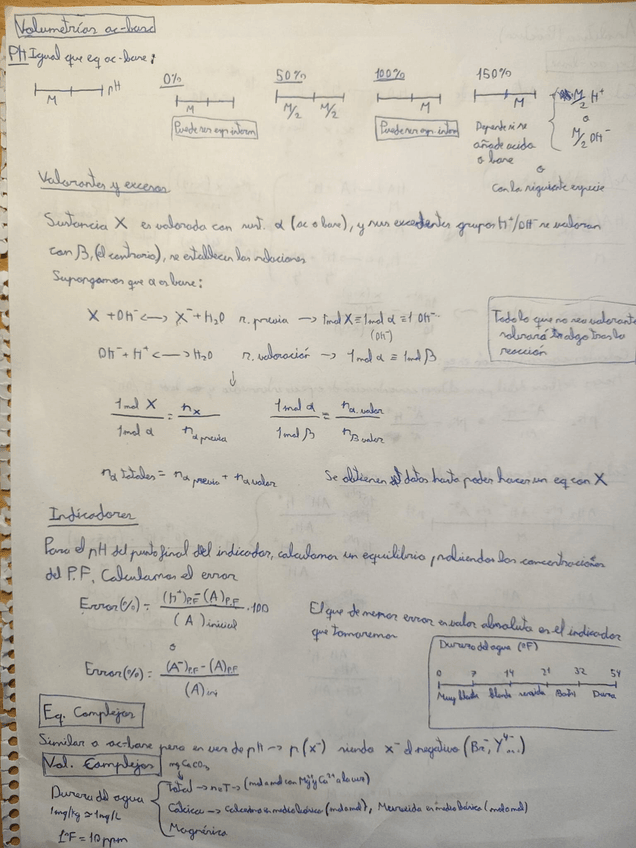 Volumetrías ac-base
PH Igual que eq ac-base:
M pH
0% M Puede ser esp. interm
50% M/2 M/2
100% M Puede ser esp. interm
150% M M/2 H⁺ o M/2 OH⁻
Depende si se añade acido o base
o
Con la siguiente especie
Valorantes y excesos
Sustancia X es valorada con sust. α (ac o base), y sus excedentes grupos H⁺/OH⁻ se valoran
con β, (el contrario), se establecen las relaciones
Supongamos que α es base:
X + OH⁻ <—> X⁻ + H₂O r. previa —> 1mol X ≡ 1mol α ≡ 1 OH⁻
(OH⁻)
OH⁻ + H⁺ <—> H₂O r. valoración —> 1mol α ≡ 1mol β
Todo lo que no sea valorante
sobrará algo tras la
reacción
↓
1mol X / 1mol α = nx / nα previa 1mol α / 1mol β = nα valor / nβ valor
nα totales = nα previa + nα valor Se obtienen datos hasta poder hacer un eq con X
Indicadores
Para el pH del punto final del indicador, calculamos un equilibrio, pidiendo las concentraciones
del P.F, Calculamos el error
Error(%) = (H⁺)P.F - (A)P.F / (A) inicial · 100
El que de menor error en valor absoluto es el indicador
que tomaremos
o
Error(%) = (A⁻)P.F - (A)P.F / (A) ini
Dureza del agua (ºF)
0 7 14 21 32 54
Muy blanda blanda Dura
Eq. Complejos
Similar a ac-base pero en vez de pH —> p(x⁻) siendo x⁻ el negativo (Br⁻, Y⁴⁻...)
Val. Complejos
mg CaCO₃
Dureza del agua
1mg/kg ≈ 1mg/L
1ºF = 10 ppm
Total —> neT —> (mol a mol con Mg²⁺ y Ca²⁺ a la vez)
Cálcica —> Calcera en medio básico (mol a mol), Murexida en medio básico (mol a mol)
Magnésica